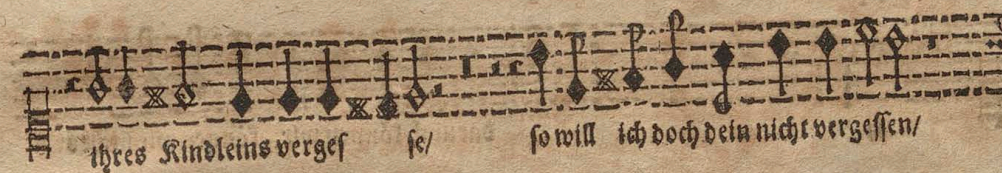 ihres Kindleins vergeſ ſe/ ſo will ich doch dein nicht vergeſſen/